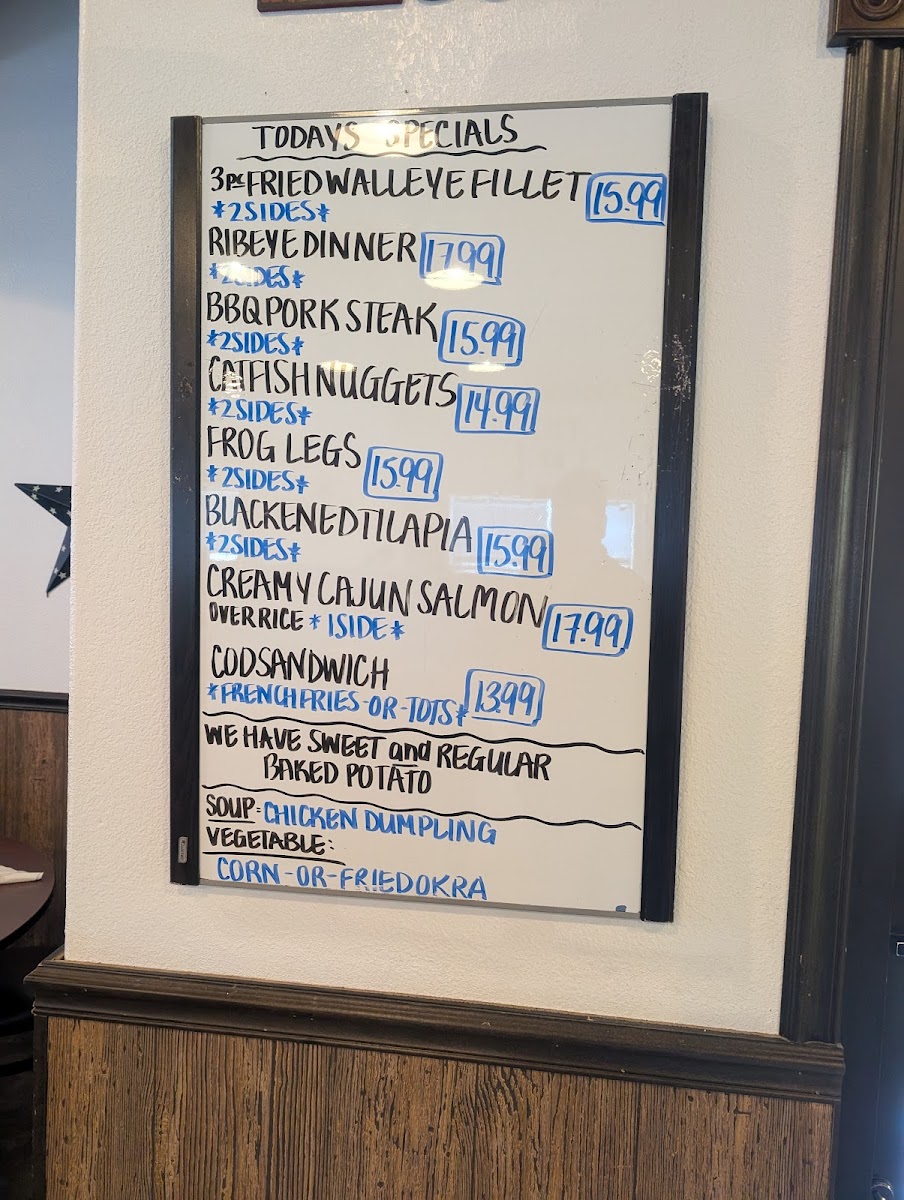 TODAYS SPECIALS
3PC FRIED WALLEYE FILLET 15.99
*2SIDES*
RIBEYE DINNER 17.99
*2SIDES*
BBQ PORK STEAK 15.99
*2SIDES*
CATFISH NUGGETS 14.99
*2SIDES*
FROG LEGS 15.99
*2SIDES*
BLACKENED TILAPIA 15.99
*2SIDES*
CREAMY CAJUN SALMON 17.99
OVER RICE *1SIDE*
COD SANDWICH 13.99
*FRENCH FRIES-OR-TOTS*
WE HAVE SWEET and REGULAR
BAKED POTATO
SOUP: CHICKEN DUMPLING
VEGETABLE:
CORN-OR-FRIED OKRA